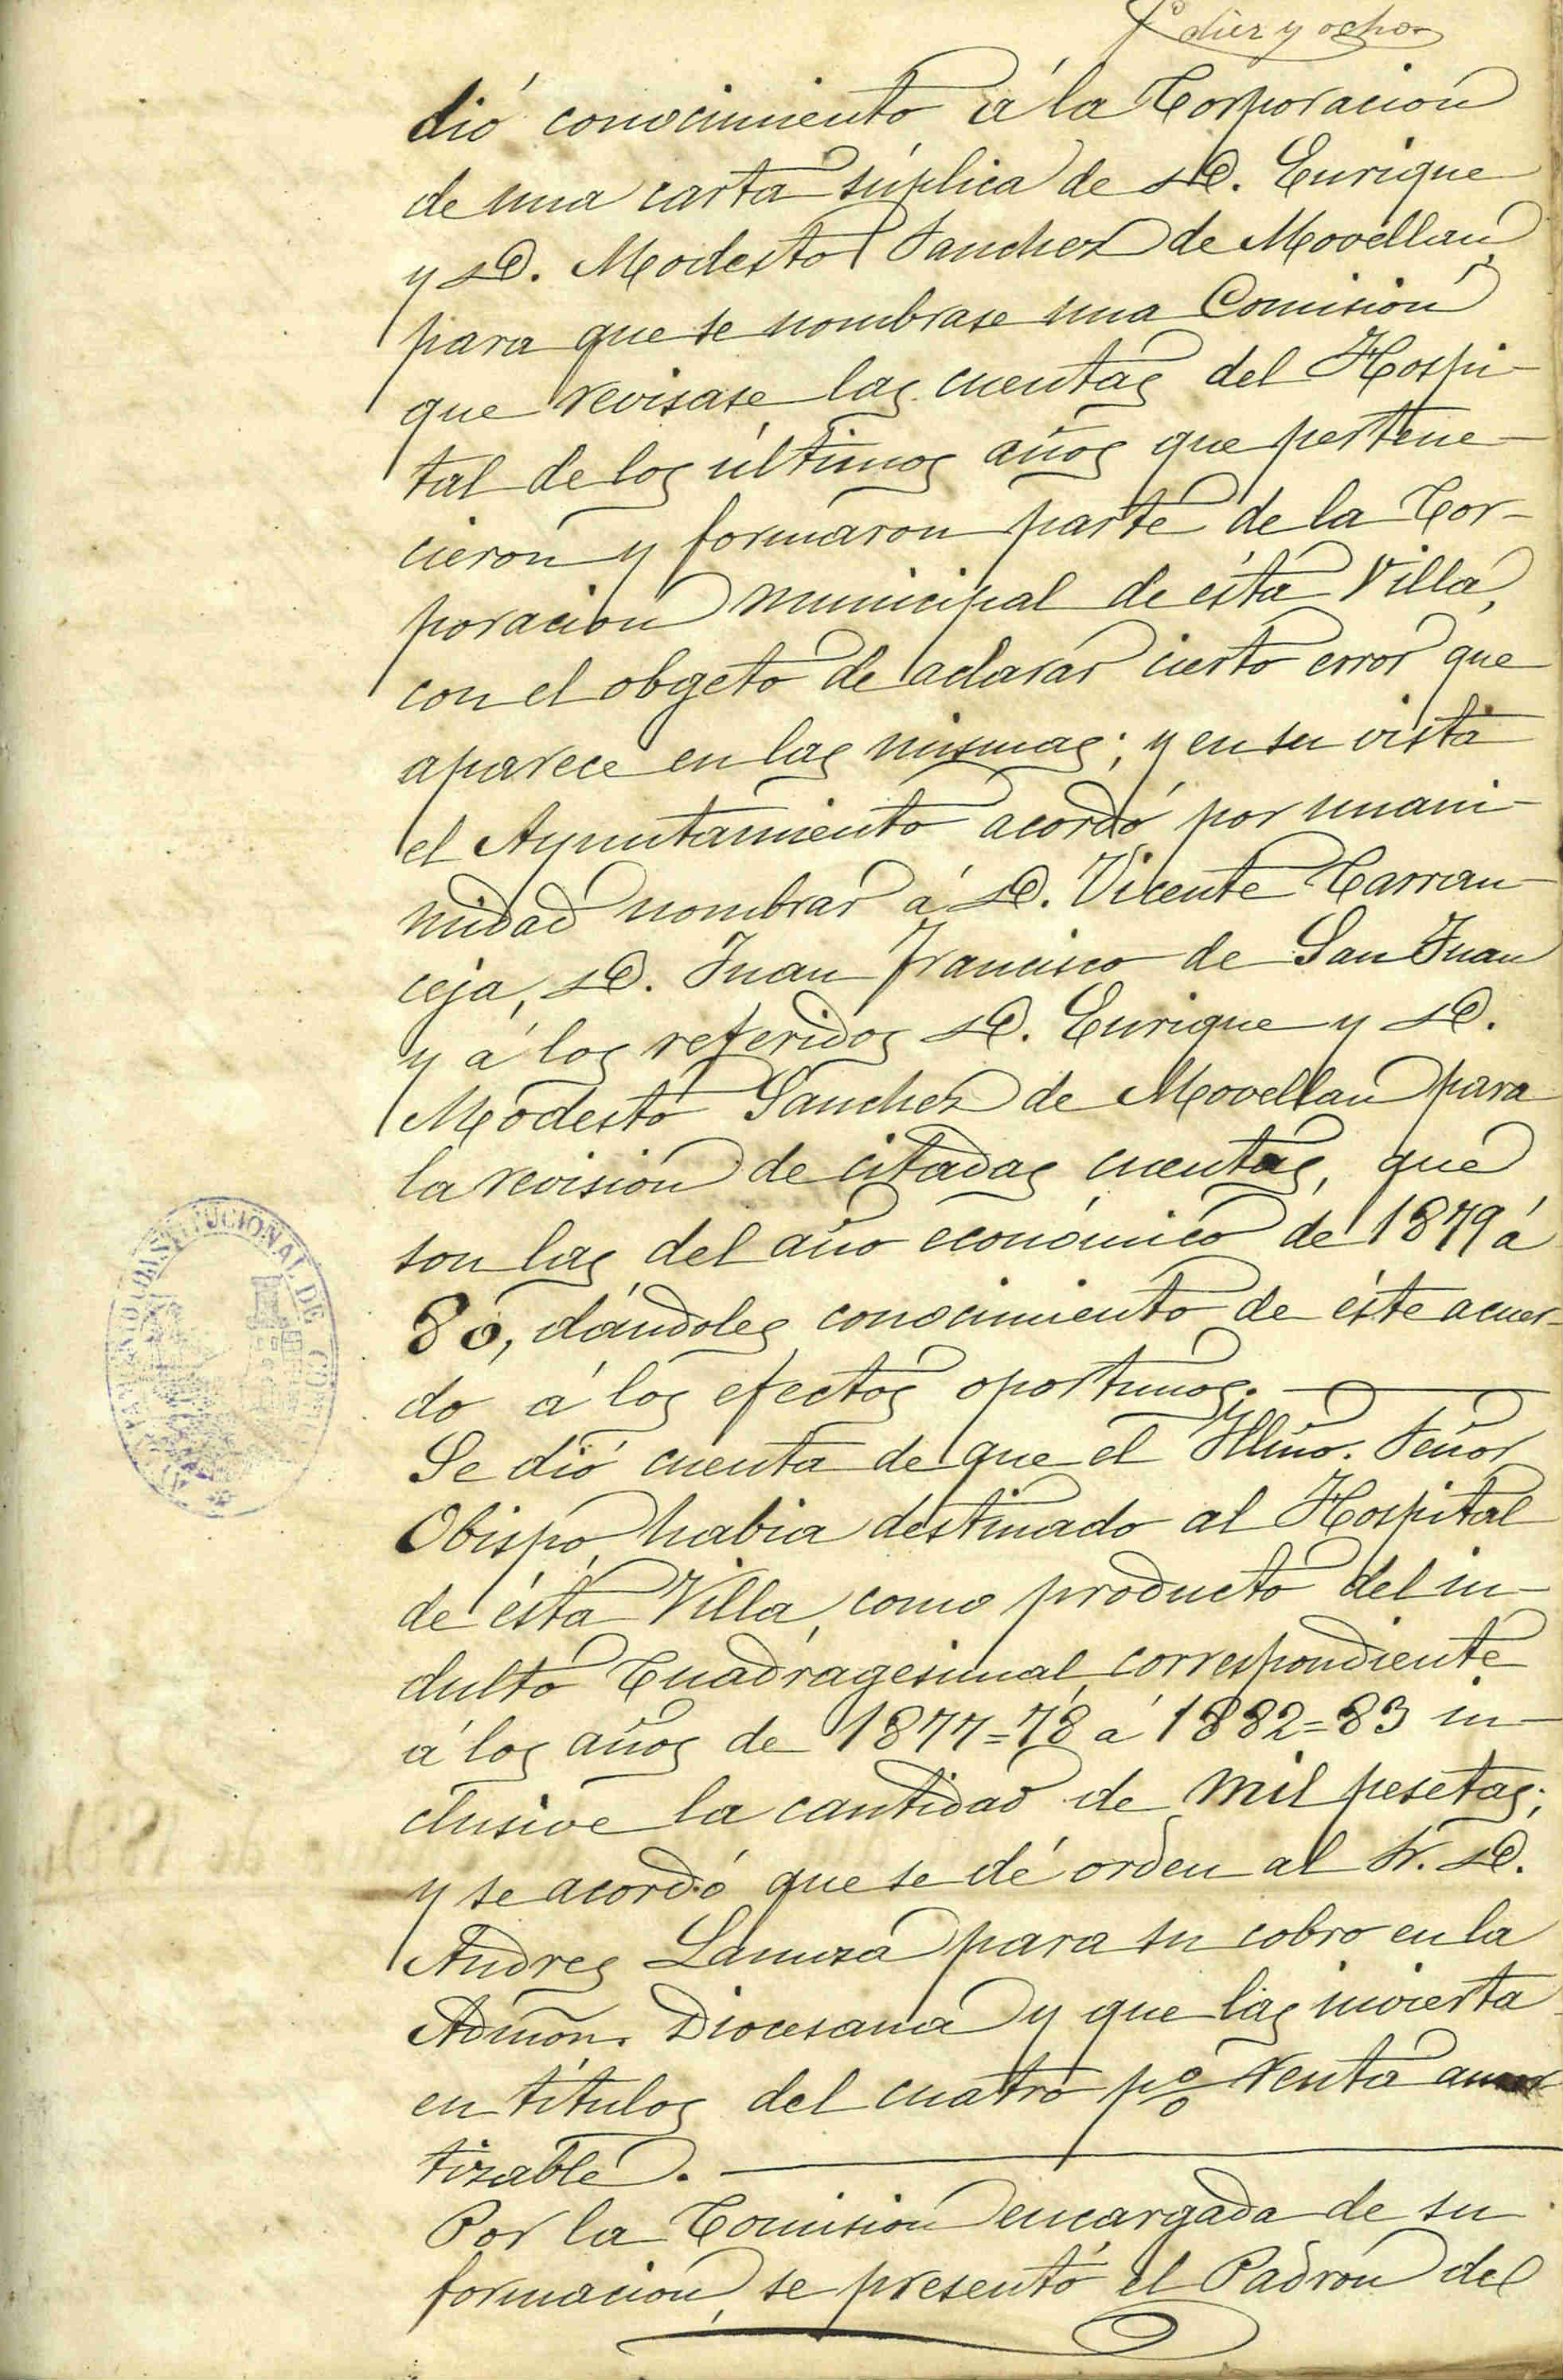 fº diez y ocho
dió conocimiento á la Corporacion
de una carta súplica de D. Enrique
y D. Modesto Sanchez de Movellan,
para que se nombrase una Comisión
que revisase las cuentas del Hospi-
tal de los últimos años que pertene-
cieron y formaron parte de la Cor-
poracion municipal de ésta Villa,
con el obgeto de aclarar cierto error que
aparece en las mismas; y en su vista
el Ayuntamiento acordó por unani-
midad nombrar á D. Vicente Carran-
ceja, D. Juan Francisco de San Juan
y á los referidos D. Enrique y D.
Modesto Sanchez de Movellan para
la revisión de citadas cuentas, que
son las del año económico de 1879 á
80, dándoles conocimiento de éste acuer-
do á los efectos oportunos.
Se dió cuenta de que el Yllmo. Señor
Obispo, habia destinado al Hospital
de ésta Villa, como producto del in-
dulto Cuadragesimal, correspondiente
á los años de 1877=78 á 1882=83 in-
clusive la cantidad de mil pesetas;
y se acordó que se dé orden al Sr. D.
Andres Lanuza para su cobro en la
Admón. Diocesana y que las invierta
en títulos del cuatro pº/o renta amor
tizable.
Por la Comisión encargada de su
formacion, se presentó el Padron del
AYUNTAMIENTO CONSTITUCIONAL DE